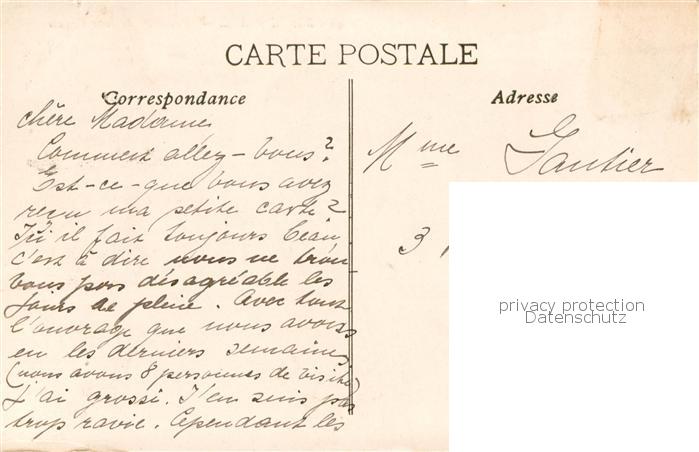 CARTE POSTALE
Correspondance
chère Madame
Comment allez-vous?
Est-ce-que vous avez
reçu ma petite carte?
Ici il fait toujours beau,
c'est à dire nous ne trou
vons pas désagréable les
jours de pluie. Avec tout
l'ouvrage que nous avons
en les derniers semaines
(nous avons 8 personnes de visite)
j'ai grossi. J'en suis pas
trop ravie. Cependant les
Adresse
Mme Gautier
3
privacy protection
Datenschutz